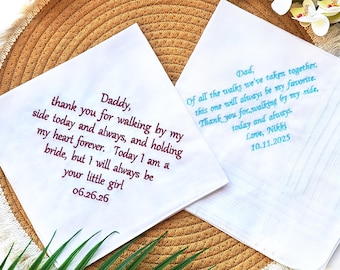 Daddy,
thank you for walking by my
side today and always, and holding
my heart forever. Today I am a
bride, but I will always be
your little girl
06.26.26
Dad,
Of all the walks we've taken together,
this one will always be my favorite.
Thank you for walking by my side,
today and always.
Love, Nikki
10.11.2025